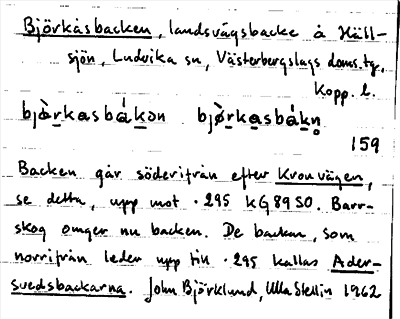 Björkåsbacken, landsvägsbacke å Häll-
sjön, Ludvika sn, Västerbergslags doms.tg,
Kopp. l.
bjə̀rkasbákən bjə̀rkasbákn̥
159
Backen går söderifrån efter Kronvägen,
se detta, upp mot .295 kG 89 SO. Barr-
skog omger nu backen. De backar, som
norrifrån leder upp till .295 kallas Ader-
svedsbackarna. John Björklund, Ulla Stellin 1962